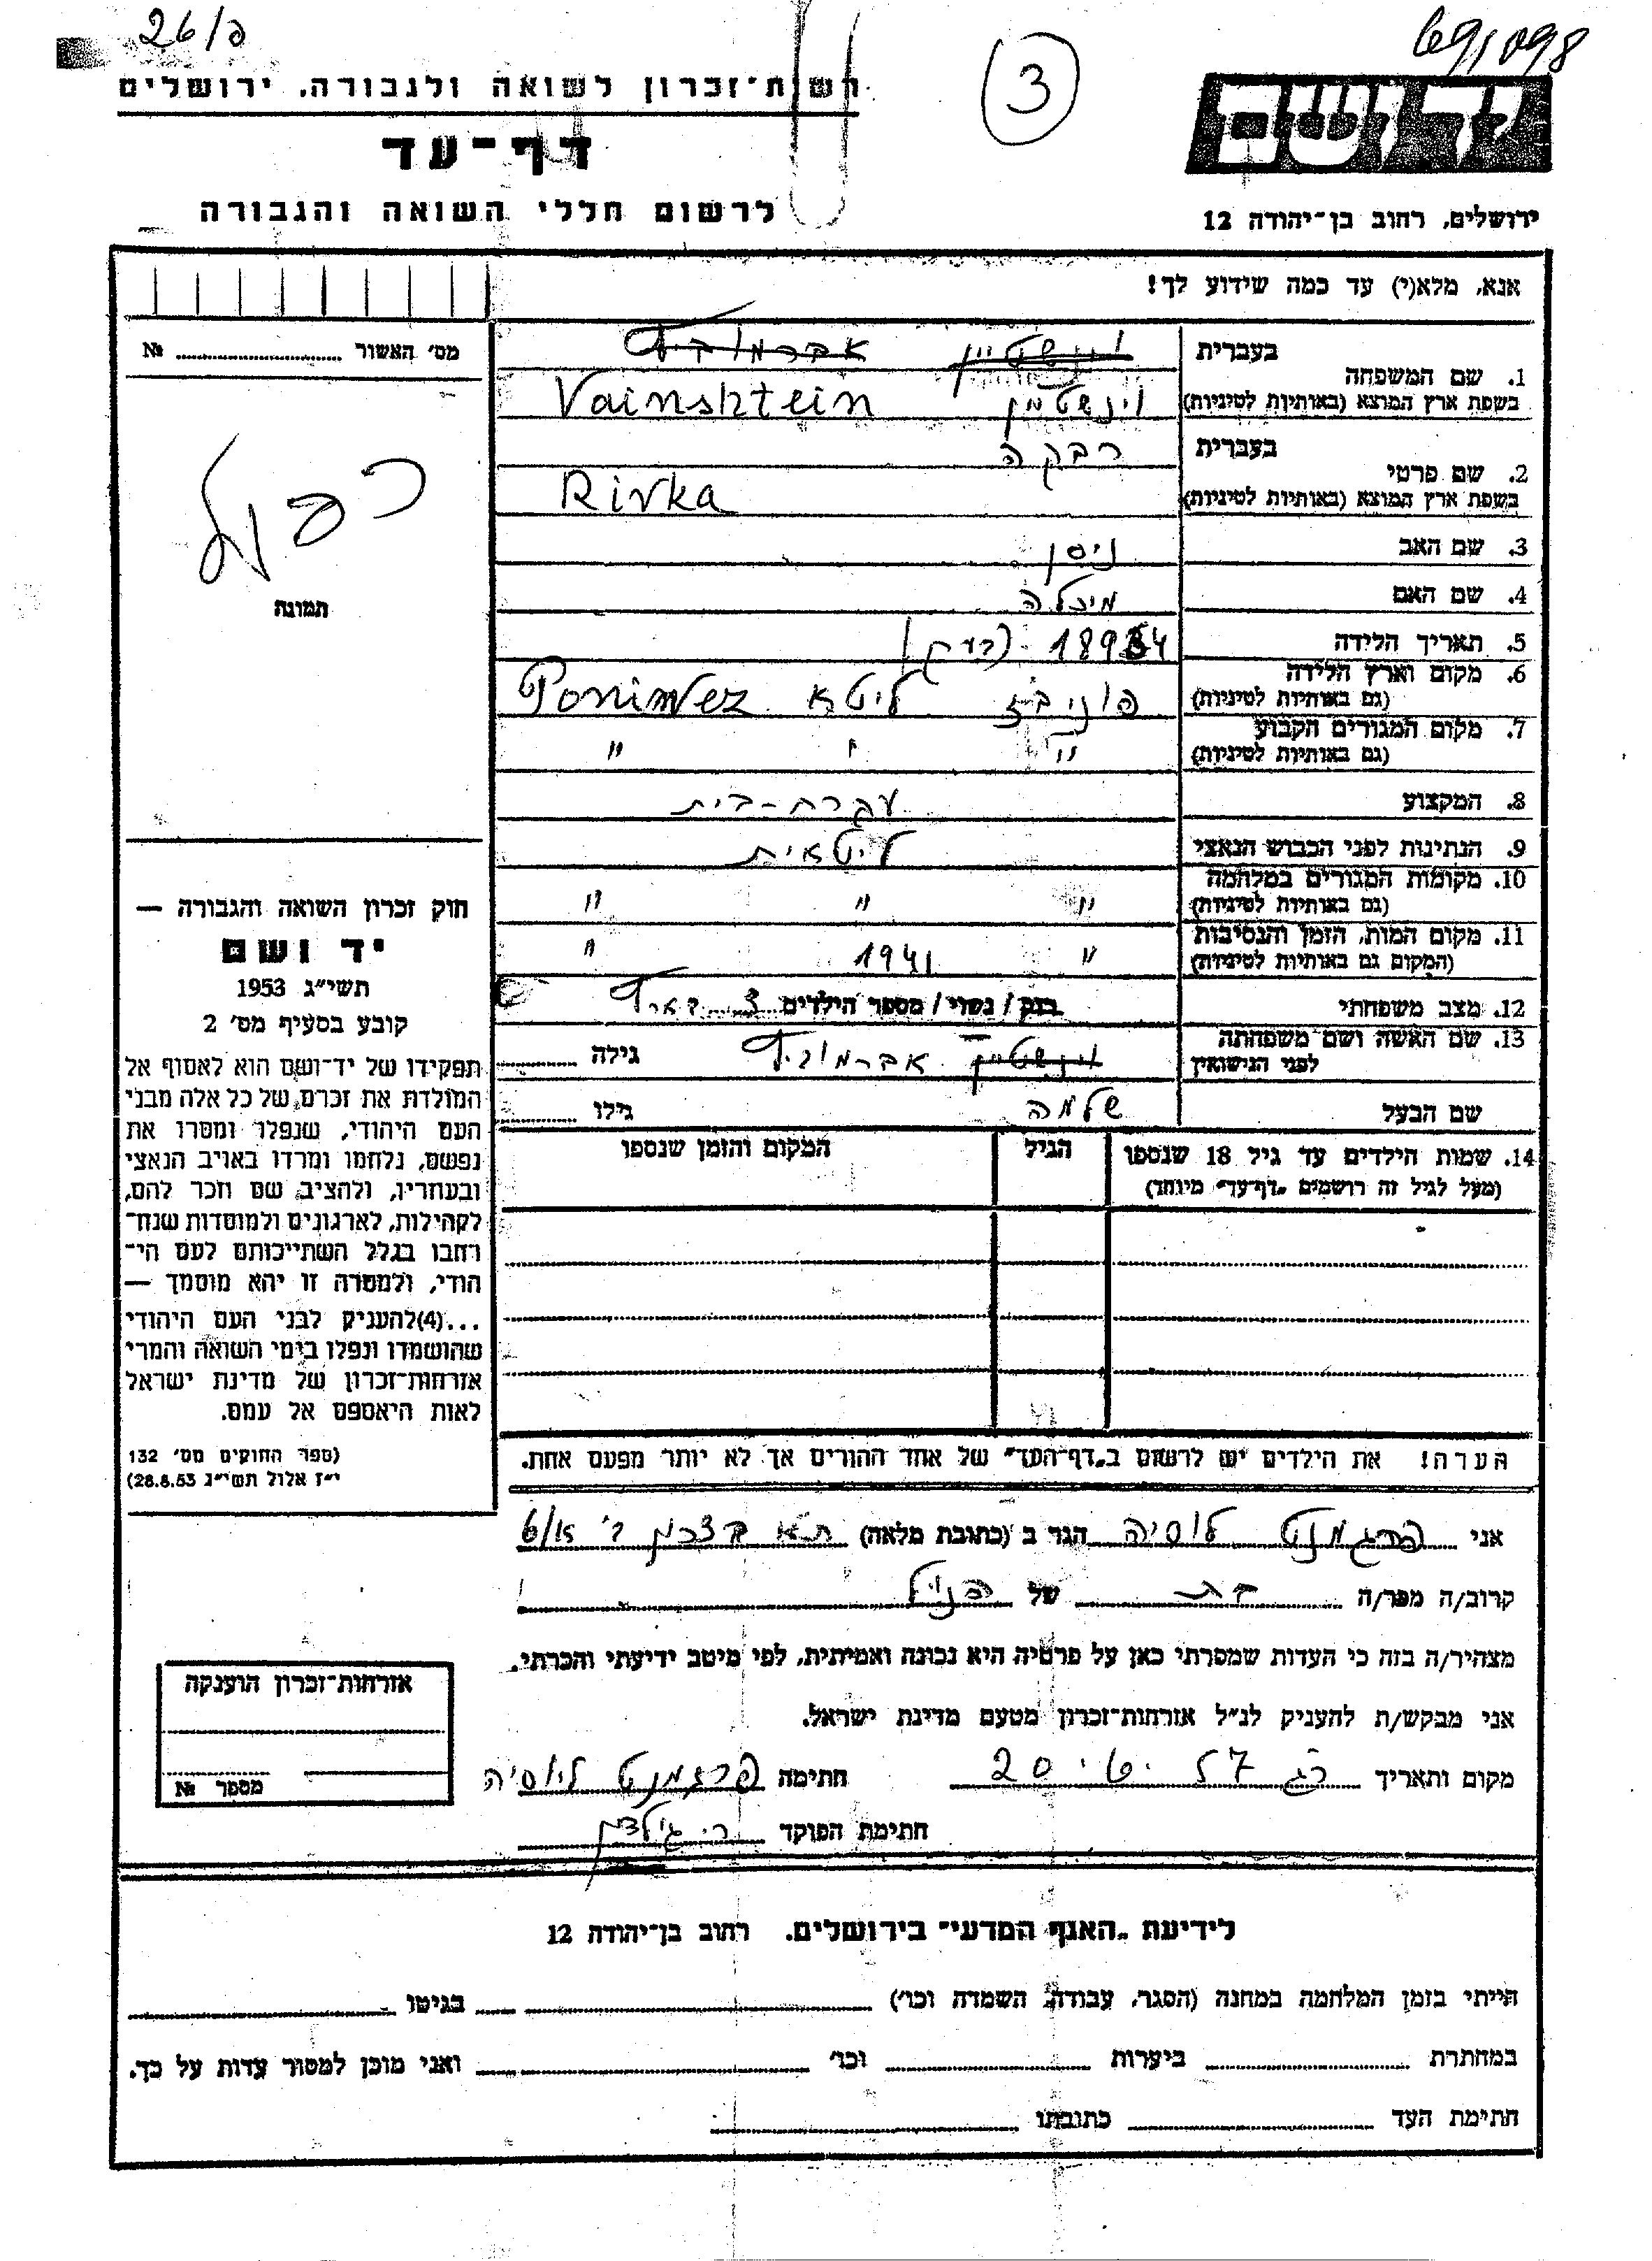 26/פ
691098
3
רשות־זכרון לשואה ולגבורה, ירושלים
דף־עד
לרשום חללי השואה והגבורה
יד ושם
ירושלים, רחוב בן־יהודה 12
אנא, מלא(י) עד כמה שידוע לך!
מס׳ האשור ........ №
תמונה
חוק זכרון השואה והגבורה —
יד ושם
תשי״ג 1953
קובע בסעיף מס׳ 2
תפקידו של יד־ושם הוא לאסוף אל
המולדת את זכרם של כל אלה מבני
העם היהודי, שנפלו ומסרו את
נפשם, נלחמו ומרדו באויב הנאצי
ובעוזריו, ולהציב שם וזכר להם,
לקהילות, לארגונים ולמוסדות שנח־
רחבו בגלל השתייכותם לעם הי־
הודי, ולמטרה זו יהא מוסמך —
...(4)להעניק לבני העם היהודי
שהושמדו ונפלו בימי השואה והמרי
אזרחות־זכרון של מדינת ישראל
לאות היאספם אל עמם.
(ספר החוקים מס׳ 132
י״ז אלול תשי״ג 28.8.53)
בעברית וינשטיין אברמוביץ
1. שם המשפחה
בשפת ארץ המוצא (באותיות לטיניות) וינשטיין Vainshtein
בעברית רבקה
2. שם פרטי
בשפת ארץ המוצא (באותיות לטיניות) Rivka
3. שם האב ניסן
4. שם האם מיכלה
5. תאריך הלידה 1894
6. מקום וארץ הלידה
(גם באותיות לטיניות) פוניבז ליטא Ponivez
7. מקום המגורים הקבוע
(גם באותיות לטיניות) " " "
8. המקצוע עקרת-בית
9. הנתינות לפני הכבוש הנאצי ליטאית
10. מקומות המגורים במלחמה
(גם באותיות לטיניות) " " "
11. מקום המות, הזמן והנסיבות
(המקום גם באותיות לטיניות) " 1941 "
12. מצב משפחתי רווק / נשוי / מספר הילדים
13. שם האשה ושם משפחתה
לפני הנישואין וינשטיין אברמוביץ גילה
שם הבעל שלמה גילו
14. שמות הילדים עד גיל 18 שנספו הגיל המקום והזמן שנספו
(מעל לגיל זה רושמים „דף־עד״ מיוחד)
הערה! את הילדים יש לרשום ב„דף־העד״ של אחד ההורים אך לא יותר מפעם אחת.
אני פרגמנט לוסיה הגר ב (כתובת מלאה) ת"א
קרוב/ה מפר/ה בת של הנ"ל
מצהיר/ה בזה כי העדות שמסרתי כאן על פרטיה היא נכונה ואמיתית, לפי מיטב ידיעתי והכרתי.
אני מבקש/ת להעניק לנ״ל אזרחות־זכרון מטעם מדינת ישראל.
מקום ותאריך רג 57 חתימה פרגמנט לוסיה
חתימת הפוקד
אזרחות־זכרון הוענקה
מספר №
לידיעת „האגף המדעי״ בירושלים. רחוב בן־יהודה 12
הייתי בזמן המלחמה במחנה (הסגר, עבודה, השמדה וכו׳) בגיטו
במחתרת ביערות וכו׳ ואני מוכן למסור עדות על כך.
חתימת העד כתובתו